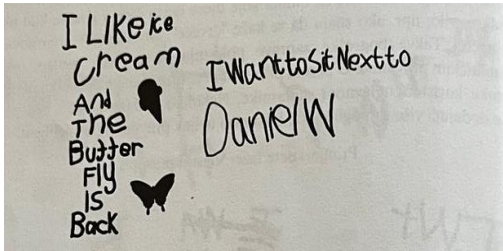 I LIKe ice
cream
And
The
Butter
Fly
IS
Back
I Want to Sit Next to
Daniel W